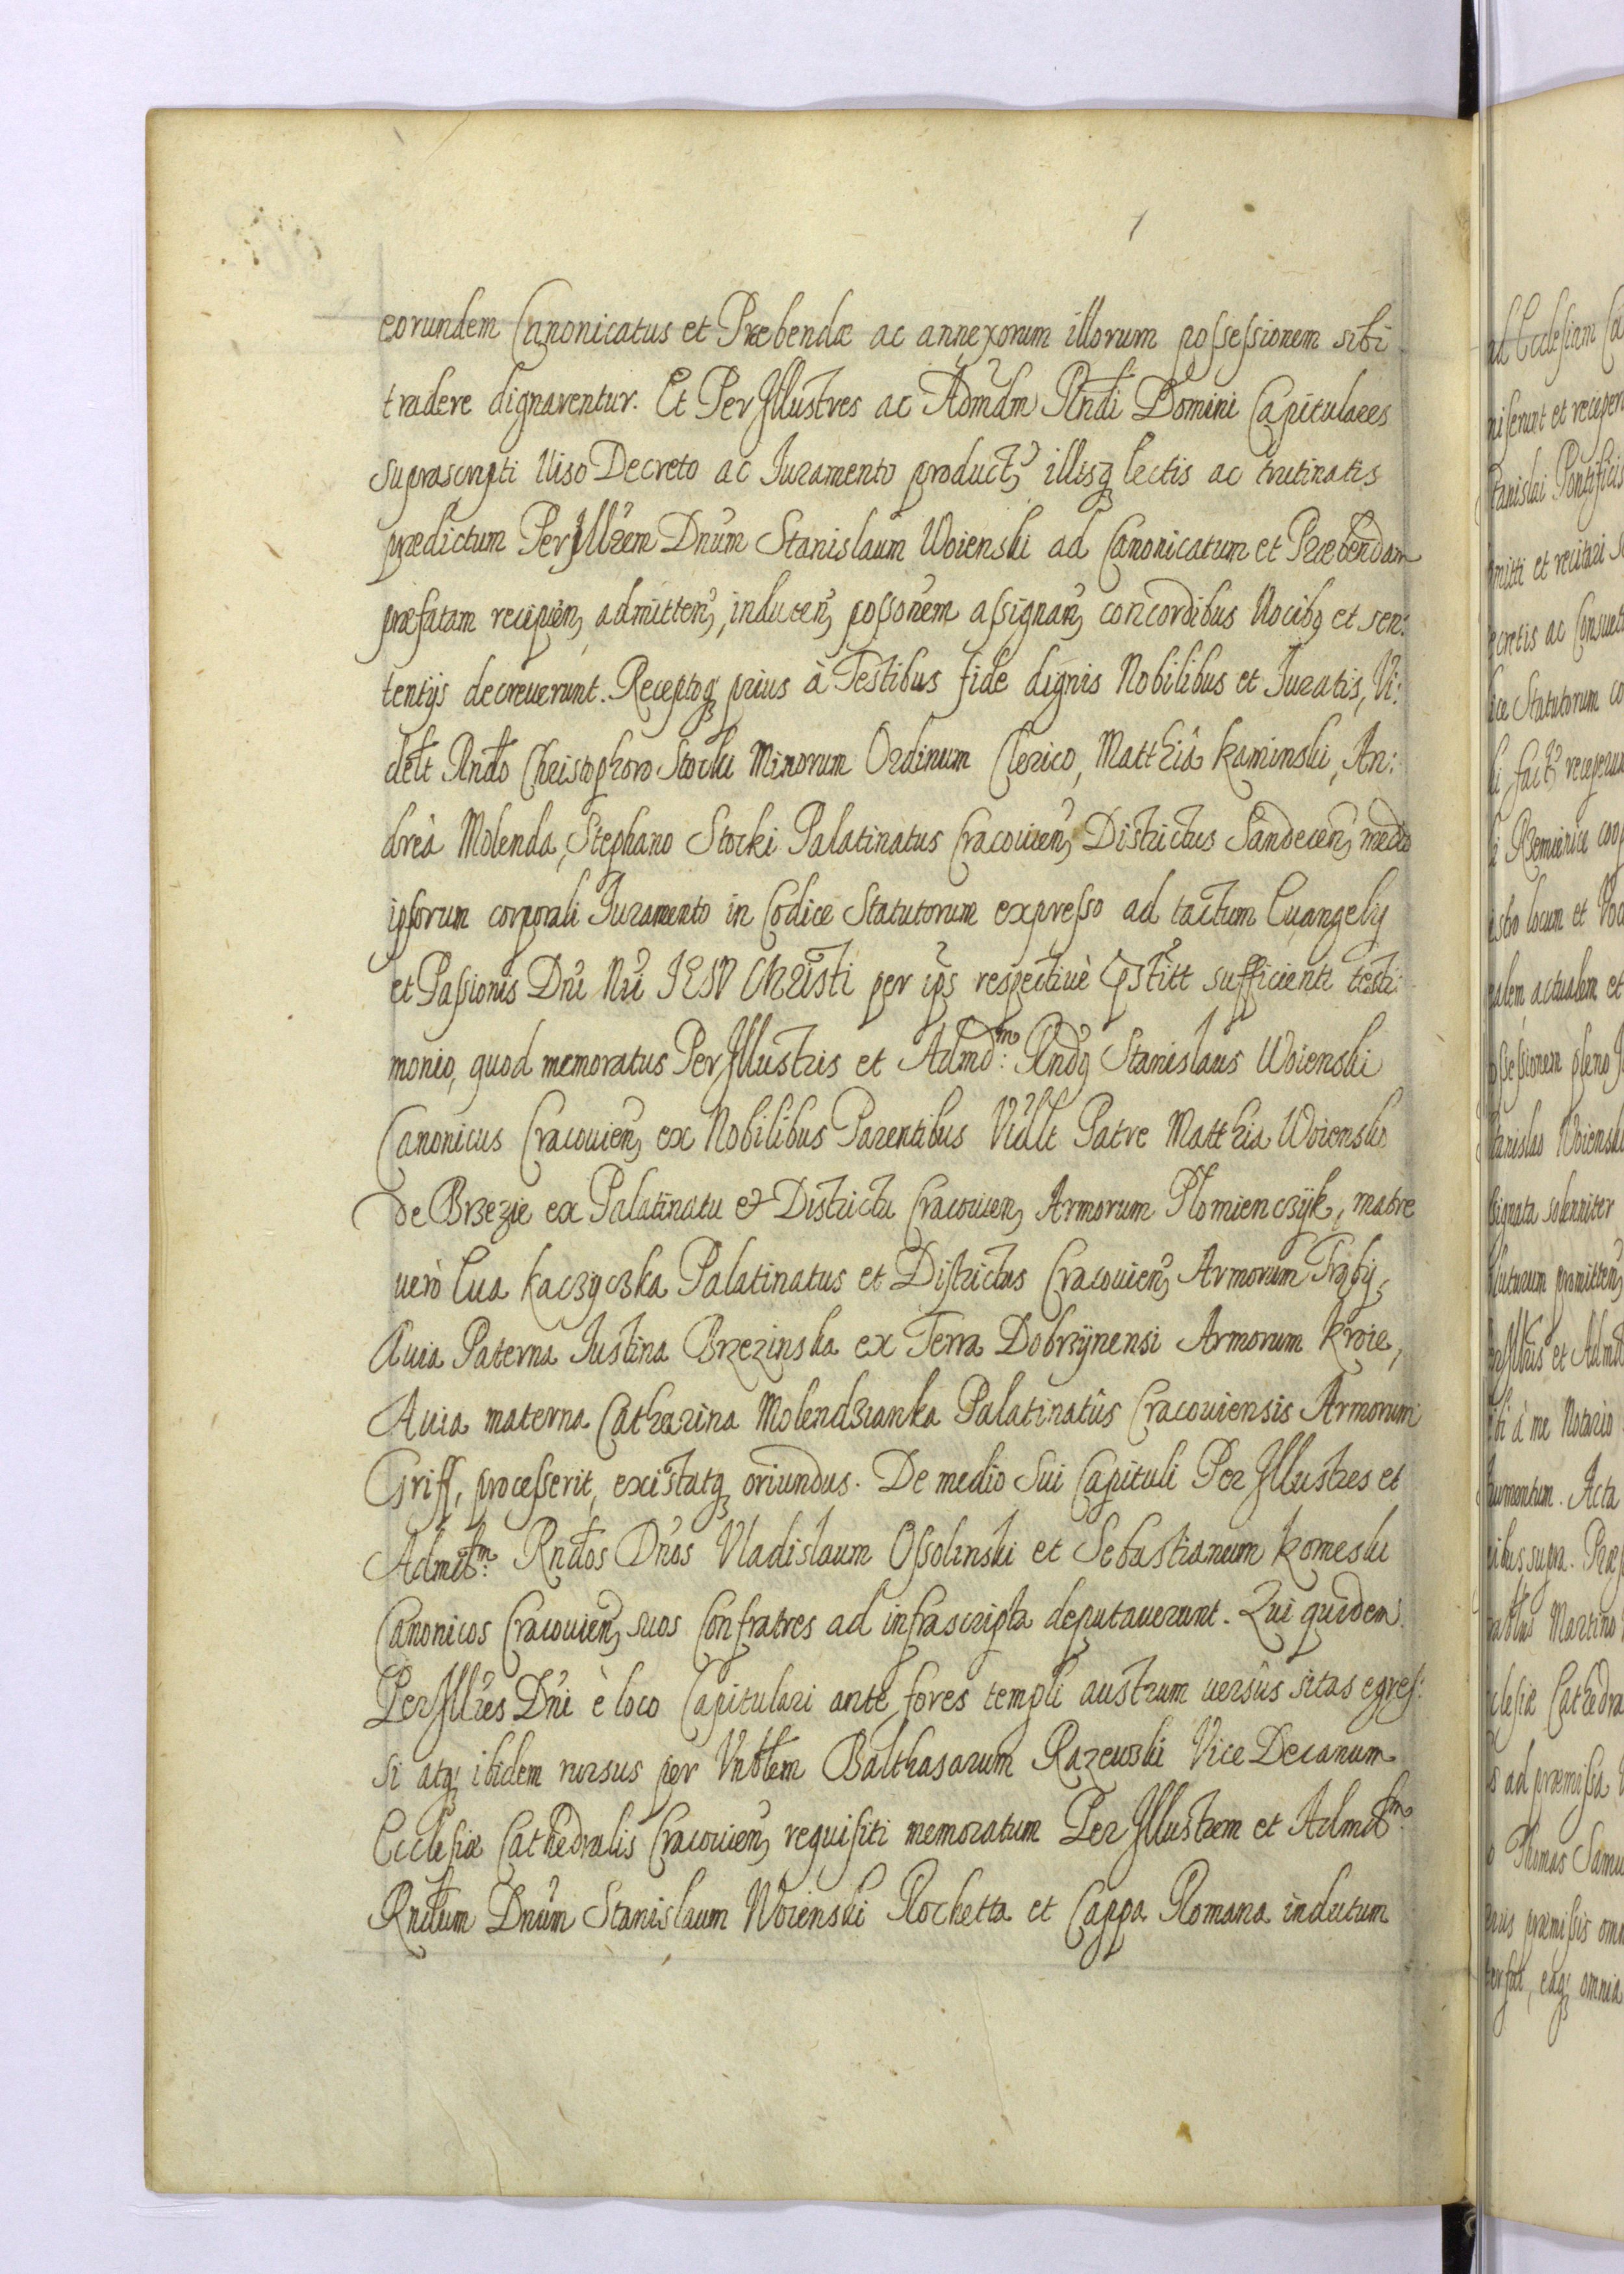 eorundem Canonicatus et Præbendæ ac annexorum illorum possessionem sibi
tradere dignarentur. Et PerIllustres ac Admdm Rndi Domini Capitulares
suprascripti Viso Decreto ac Iuramento product, illisq lectis ac trutinatis
prædictum PerIllrem Dnum Stanislaum Woienski ad Canonicatum et Præbendam
præfatam recipien, admitten, inducen, possonem assignan, concordibus Vocibq et sen:
tentijs decreuerunt. Receptoq prius à Testibus fide dignis Nobilibus et Iuratis, Vi:
delt Rndo Christophoro Stocki Minorum Ordinum Clerico, Matthiâ Kaminski, An:
dreà Molenda, Stephano Stocki Palatinatus Cracouien, Districtus Sandecen, medio
ipsorum corporali Iuramento in Codice Statutorum expresso ad tactum Euangelij
et Passionis Dni Nri IESV Christi per ips respectiuè pstitt sufficienti testi:
monio, quod memoratus PerIllustris et Admd:m Rndq Stanislaus Woienski
Canonicus Cracouien, ex Nobilibus Parentibus Vidlt Patre Matthia Woienski
de Brzezie ex Palatinatu et Districtu Cracouien, Armorum Plomienczÿk, matre
verò Eua Kaczÿczka Palatinatus et Districtus Cracouien, Armorum Trąby,
Auia Paterna Iustina Brzezinska ex Terra Dobrzÿnensi Armorum Kroie,
Auia materna Catharina Molendzianka Palatinatûs Cracouiensis Armorum
Griff, processerit, existatq oriundus. De medio Sui Capituli PerIllustres et
Admd:m Rndos Dnos Vladislaum Ossolinski et Sebastianum Komeski
Canonicos Cracouien, suos Confratres ad infrascripta deputauerunt. Qui quidem
PerIllres Dni è loco Capitulari ante fores templi austrum uersûs sitas egres:
si atq; ibidem rursus per Vnblem Balthasarum Razewski Vice Decanum
Ecclesiæ Cathedralis Cracouien, requisiti memoratum PerIllustrem et Admd:m
Rndum Dnum Stanislaum Woienski Rochetta et Cappa Romana indutum